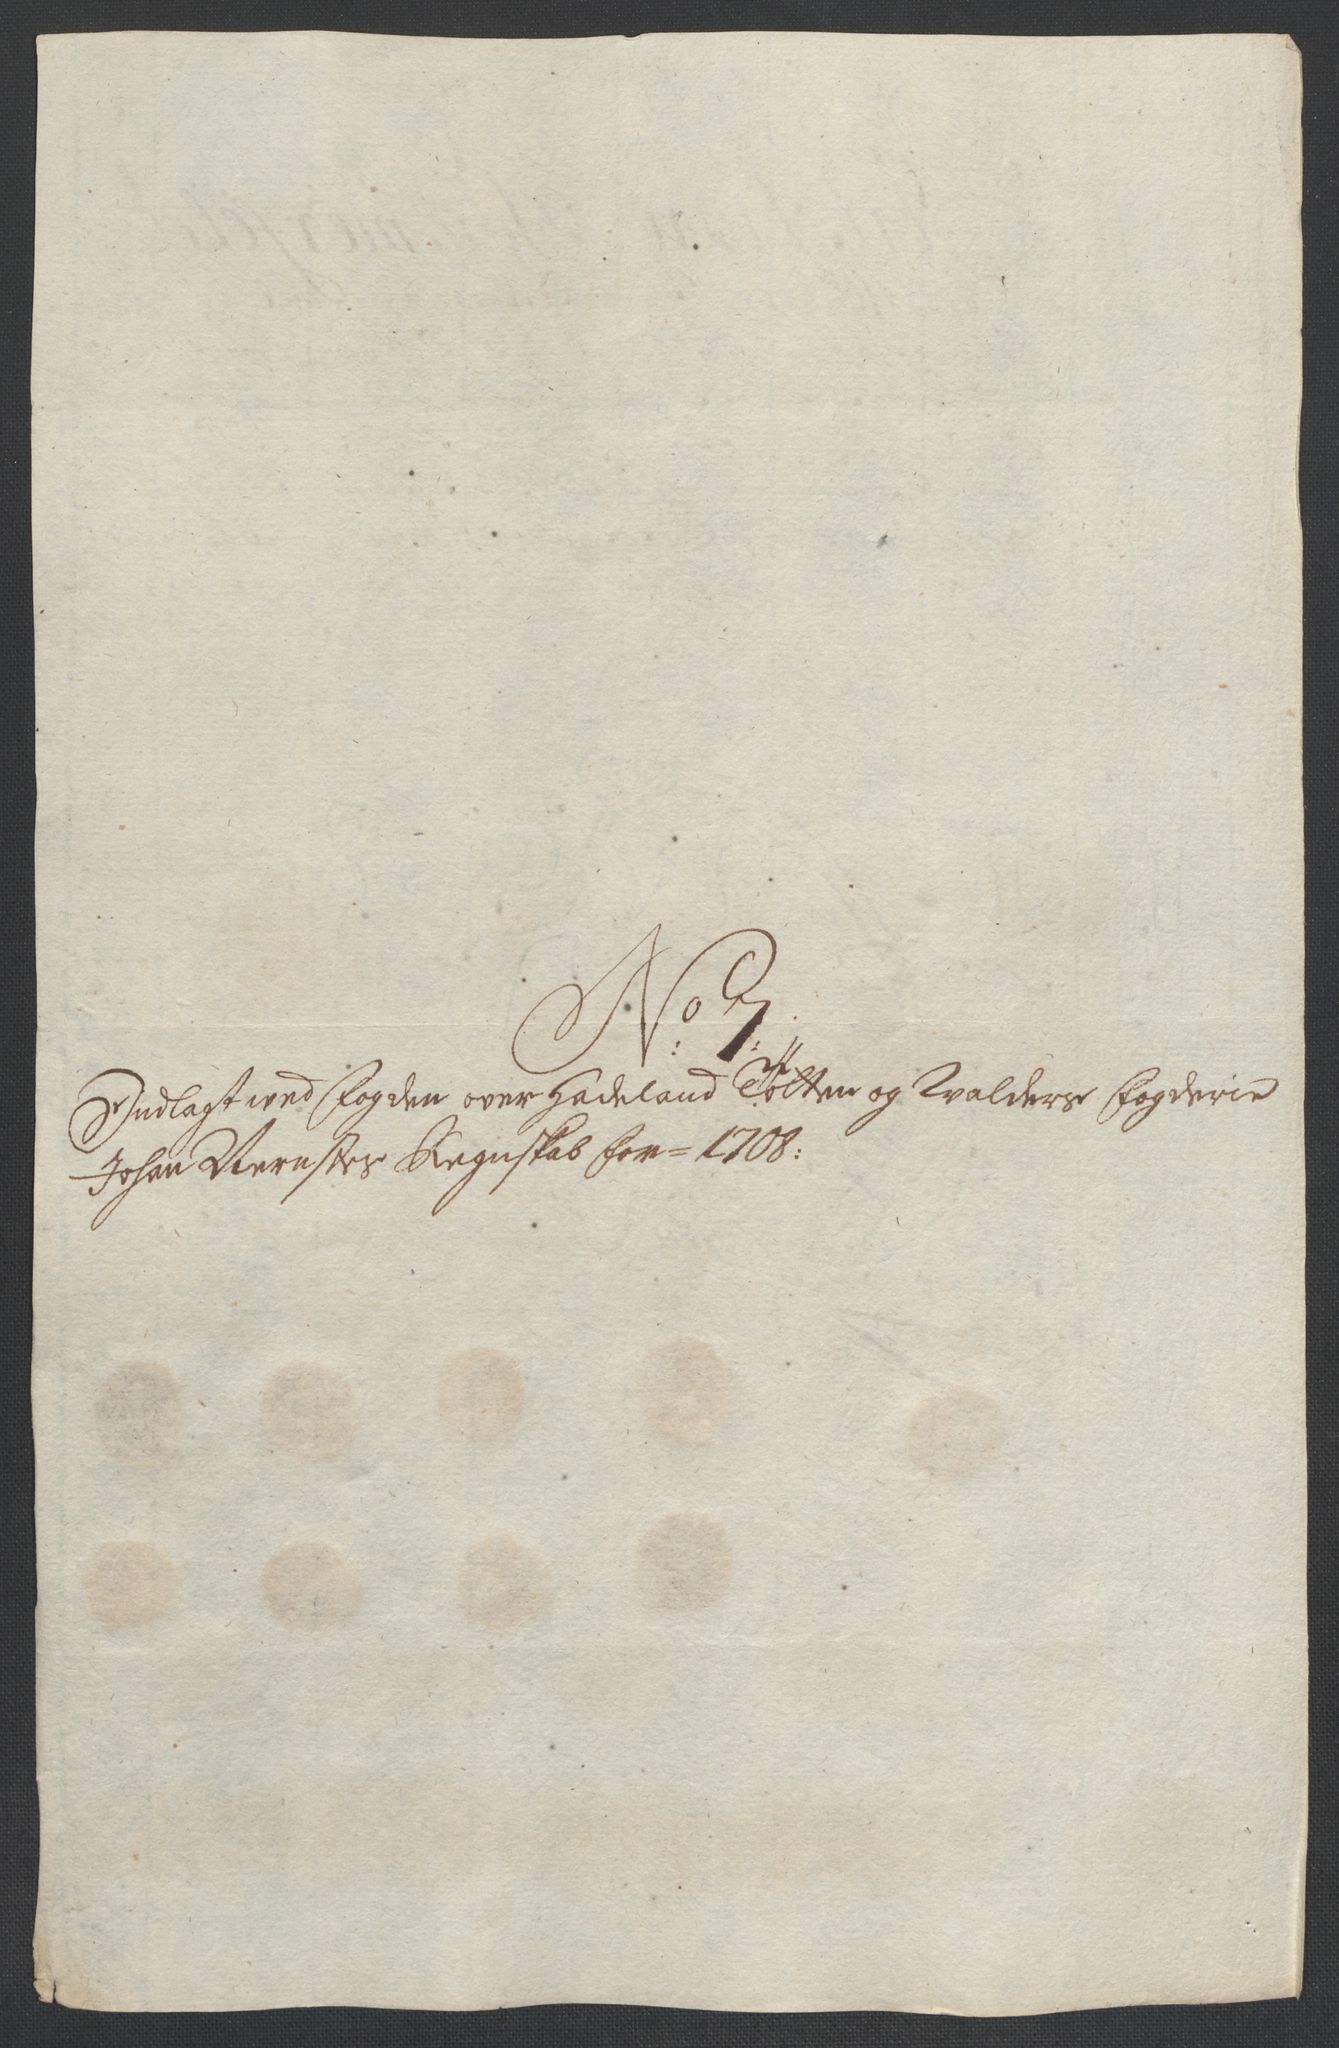 No 7:
Indlagt ved fogden over Hadeland Totten og Walders fogderie
Johan Regnskab for = 1708: